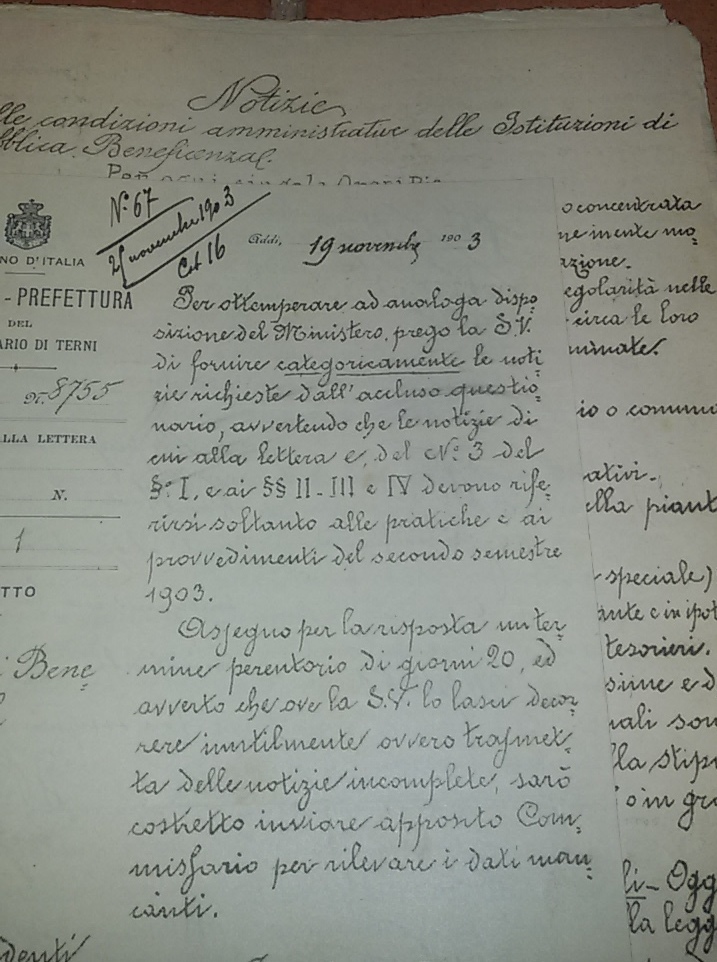 Notizie
lle condizioni amministrative delle Istituzioni di
bblica Beneficenza.
N.° 67
25 novembre 1903
Cat 16
NO D'ITALIA
- PREFETTURA
DEL
ARIO DI TERNI
N. 8755
LLA LETTERA
N.
1
TTO
i Bene=
Addì, 19 novembre 1903
Per ottemperare ad analoga dispo=
sizione del Ministero, prego la S.V.
di fornire categoricamente le noti=
zie richieste dall'accluso questio=
nario, avvertendo che le notizie di
cui alla lettera e, del N.° 3 del
§.° I, e ai §§ II - III e IV devono rife=
rirsi soltanto alle pratiche e ai
provvedimenti del secondo semestre
1903.
Assegno per la risposta un ter=
mine perentorio di giorni 20, ed
avverto che ove la S.V. lo lasci decor=
rere inutilmente ovvero trasmet=
ta delle notizie incomplete, sarò
costretto inviare apposito Com=
missario per rilevare i dati man=
canti.
denti
o concentrata
ne inente mo=
azione.
egolarità nelle
circa le loro
minate.
io o comuna
ativi.
ella piant
speciale)
ante e in ipot
tesorieri.
sime e d
ali son
lla stip
o in gr
li - Ogg
lla legg